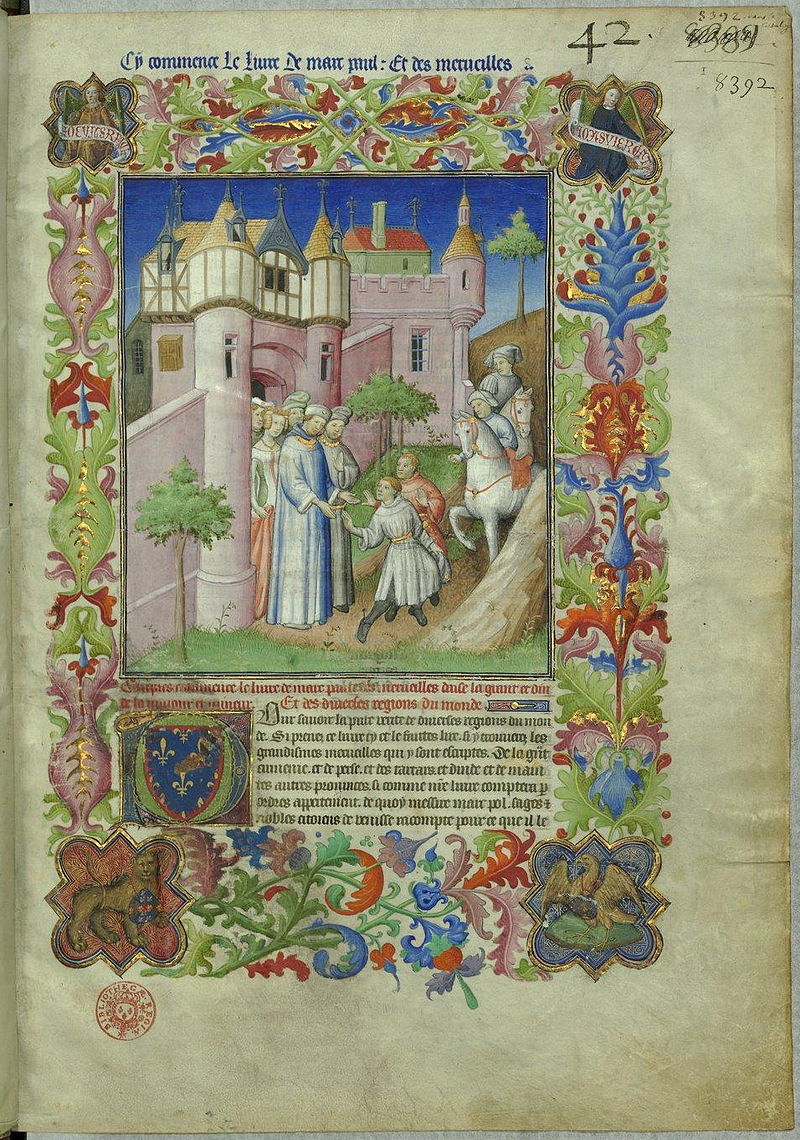 42.
8392
8392
Cy commence Le Livre De marc paul : Et des merveilles
commence le livre de marc paul et des merveilles daise la grant et din
de la maiour et mineur. Et des diverses regions du monde
Pour savoir la pure verite de diverses regions du mon
de. Si prenez ce livre cy et le faittes lire. si y trouverez les
grandismes merveilles qui y sont escriptes. De la grãt
ermenie. et de perse. et des tartars. et dinde et de main
tes autres provinces. si comme nr̃e livre comptera p
ordres appertement. de quoy messire marc pol. sages et
nobles citoiens de venisse racompte pour ce que il le
BIBLIOTHECÆ REGIÆ